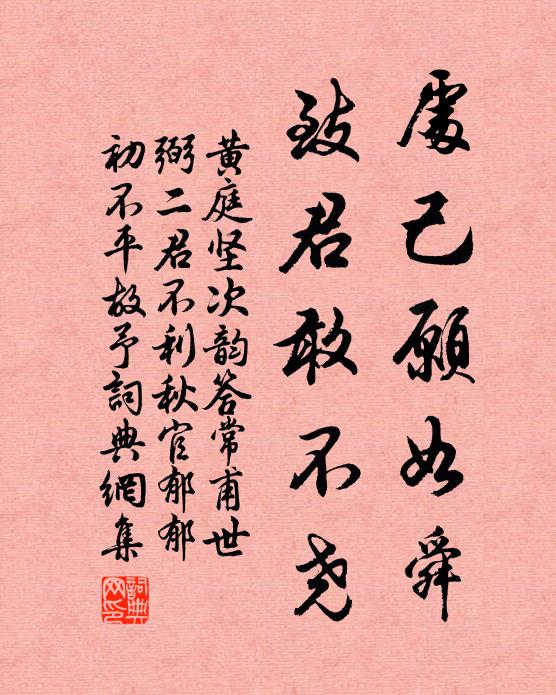 處己願如舜
致君敢不尧
黄庭坚次韵答常甫世
弼二君不利秋官郁郁
初不平故予詞典網集